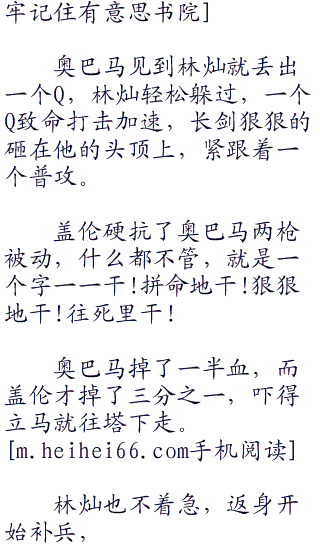 牢记住有意思书院]
奥巴马见到林灿就丢出
一个Q，林灿轻松躲过，一个
Q致命打击加速，长剑狠狠的
砸在他的头顶上，紧跟着一
个普攻。
盖伦硬抗了奥巴马两枪
被动，什么都不管，就是一
个字一一干!拼命地干!狠狠
地干!往死里干!
奥巴马掉了一半血，而
盖伦才掉了三分之一，吓得
立马就往塔下走。
[m.heihei66.com手机阅读]
林灿也不着急，返身开
始补兵，